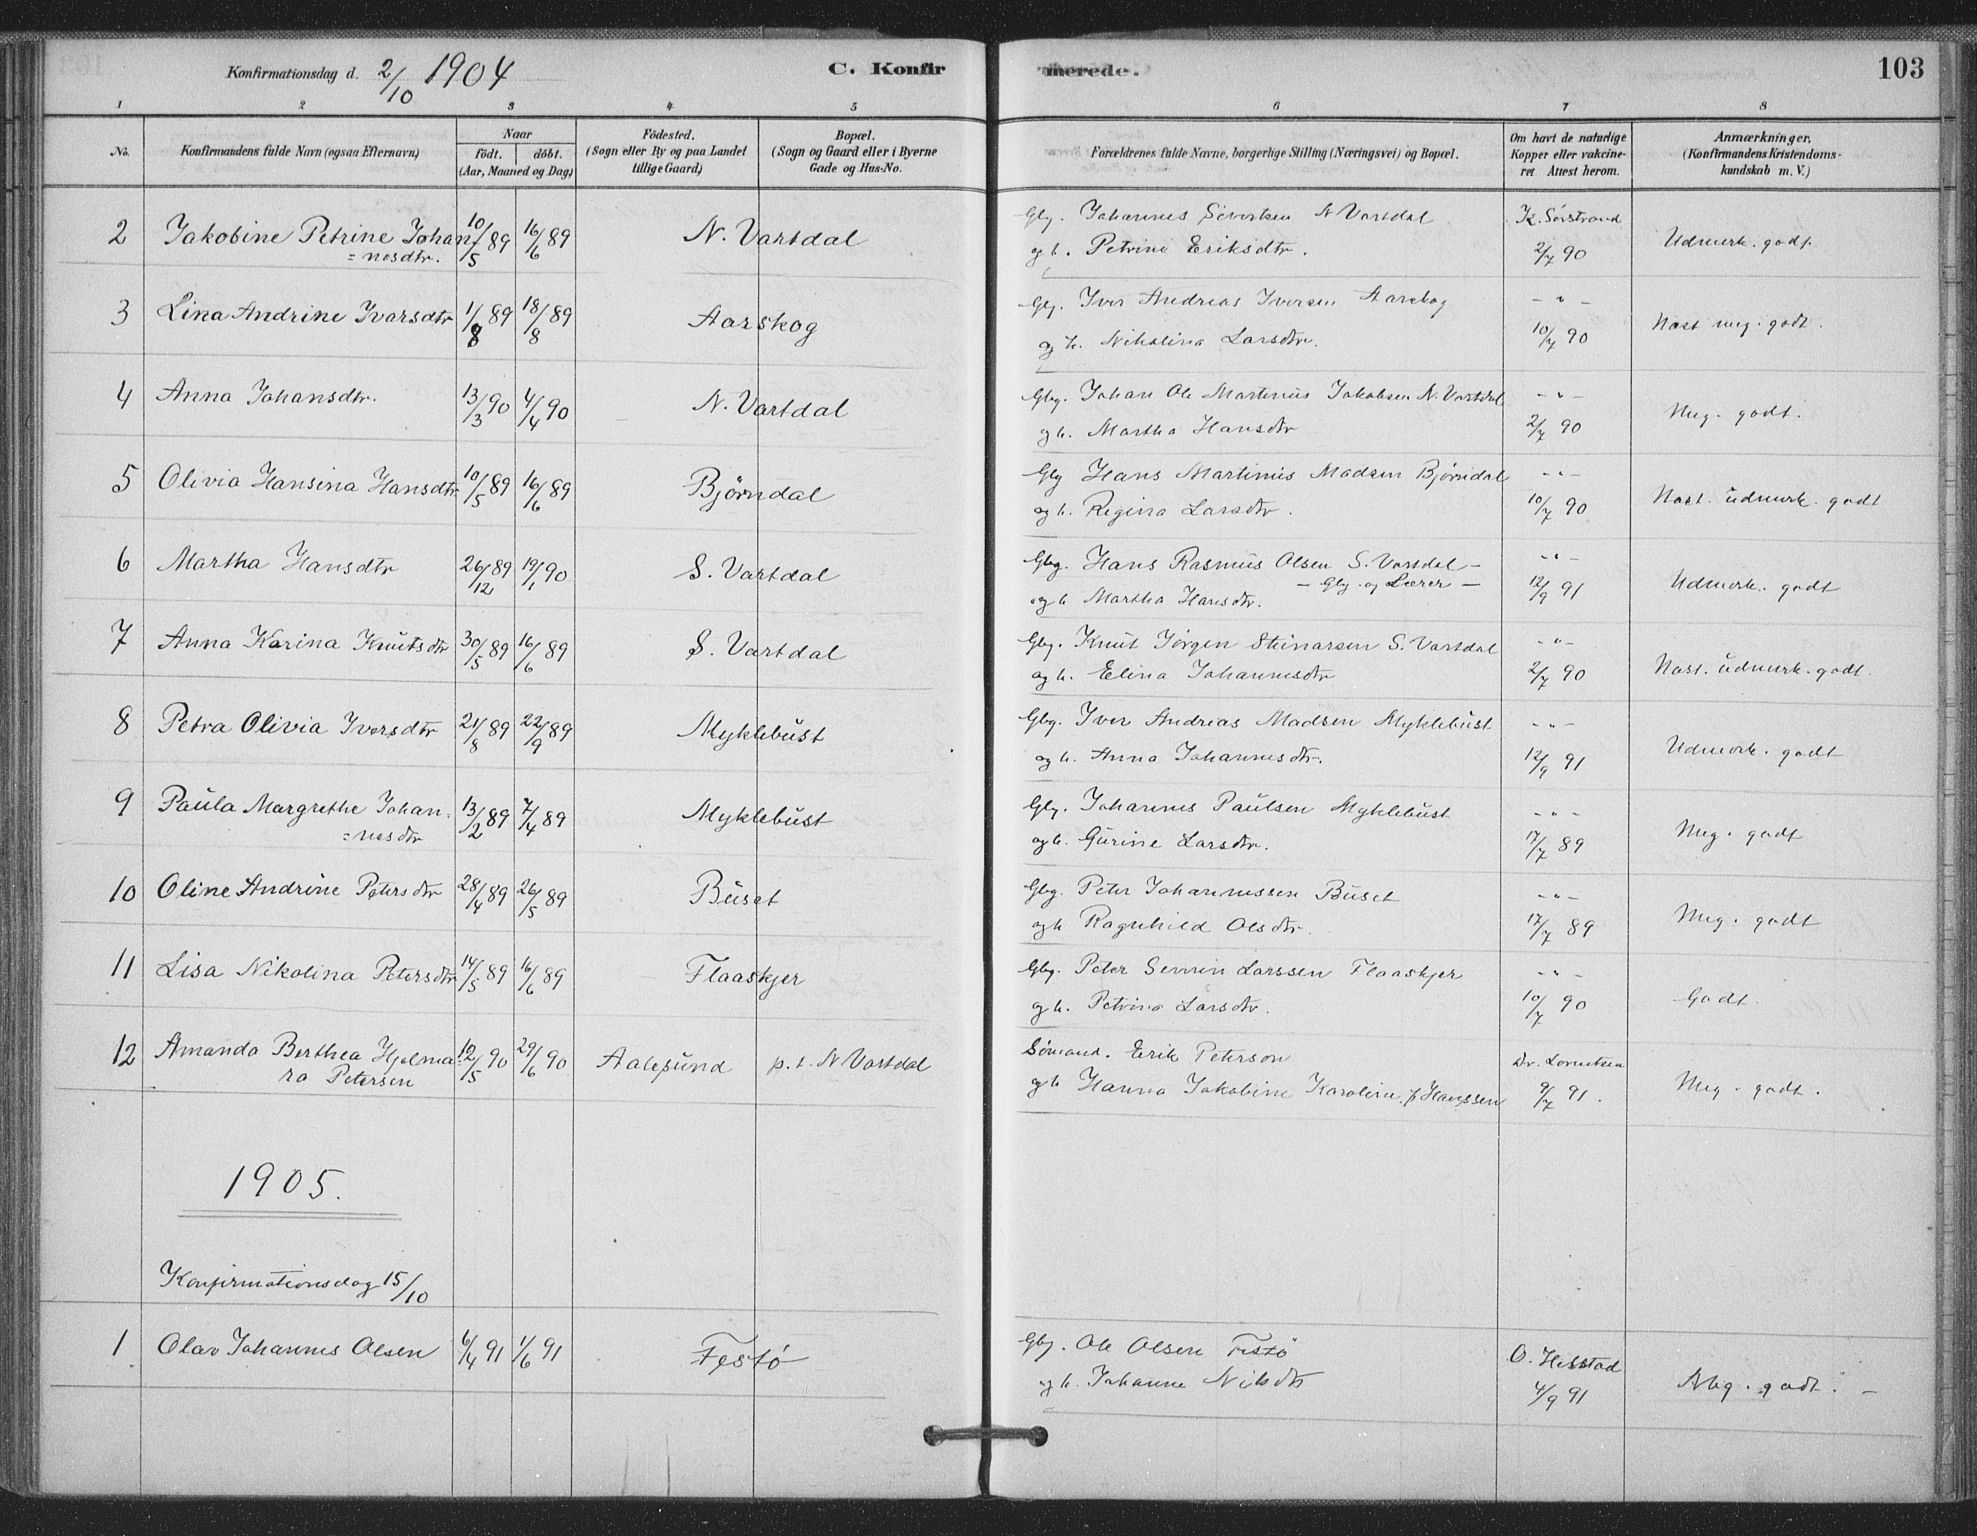 Konfirmationsdag d. 2/10 1904 C. Konfirmerede. 103
1 2 3 4 5 6 7 8
No.
Konfirmandens fulde Navn (ogsaa Efternavn)
Naar
födt. döbt.
(Aar, Maaned og Dag)
Födested.
(Sogn eller By og paa Landet
tillige Gaard)
Bopæl.
(Sogn og Gaard eller i Byerne
Gade og Hus-No.
Forældrenes fulde Navne, borgerlige Stilling (Næringsvei) og Bopæl.
Om havt de naturlige
Kopper eller vakcine-
ret Attest herom.
Anmærkninger,
(Konfirmandens Kristendoms-
kundskab m. V.)
2 Jakobine Petrine Johan- 10/5 89 16/6 89 N. Vartdal Gbg. Johannes Sivertsen N Vartdal K. Sørstrand
=nesdtr. og h. Petrine Eriksdtr. 2/7 90 Udmerk. godt.
3 Lina Andrine Ivarsdtr 1/8 89 18/8 89 Aarskog Gbg. Iver Andreas Iversen Aarskog - " -
og h. Nikolina Larsdtr. 10/7 90 Nast meg. godt.
4 Anna Johansdtr. 13/3 90 4/4 90 N. Vartdal Gbg. Johan Ole Martinus Jakobsen N. Vartdal - " -
og h. Martha Hansdtr 2/7 90 Meg. godt.
5 Olivia Hansina Hansdtr 10/5 89 16/6 89 Bjørndal Gbg Hans Martinus Madsen Bjørndal - " -
og h. Regina Larsdtr. 10/7 90 Nast. udmerk. godt
6 Martha Hansdtr 26/12 89 19/1 90 S. Vartdal Gbg. Hans Rasmus Olsen S. Vartdal - - " -
- Gbg. og Lærer -
og h Martha Hansdtr. 12/9 91 Udmerk. godt
7 Anna Karina Knutsdtr 30/5 89 16/6 89 S. Vartdal Gbg. Knut Jørgen Steinarsen S. Vartdal - " -
og h. Elina Johannesdtr 2/7 90 Nast. udmerk. godt.
8 Petra Olivia Iversdtr 21/8 89 22/9 89 Myklebust Gbg. Iver Andreas Madsen Myklebust - " -
og h. Anna Johannesdtr. 12/9 91 Udmerk. godt
9 Paula Margrethe Johan- 13/2 89 7/4 89 Myklebust Gbg. Johannes Paulsen Myklebust - " -
=nesdtr og h. Gurine Larsdtr. 17/7 89 Meg. godt
10 Oline Andrine Petersdtr 28/4 89 26/5 89 Buset Gbg. Peter Johannessen Buset - " -
og h Ragnhild Olsdtr. 17/7 89 Meg. godt
11 Lisa Nikolina Petersdtr 14/5 89 16/6 89 Flaaskjer Gbg. Peter Semin Larssen Flaaskjer - " -
og h. Petrina Larsdtr. 10/7 90 Godt.
12 Amanda Berthea Hjelma 12/5 90 29/6 90 Aalesund p. t. N Vartdal Sømand. Erik Peterson Dr. Lorentsen
ra Petersen og h Hanna Jakobine Karoline f. Hanssen 9/7 91. Meg. godt.
1905.
Konfirmationsdag 15/10
1 Olav Johannes Olsen 6/4 91 1/6 91 Festö Gbg. Ole Olsen Festö O. Hesstad
og h. Johanne Nilsdtr 4/9 91 Meg. godt. -